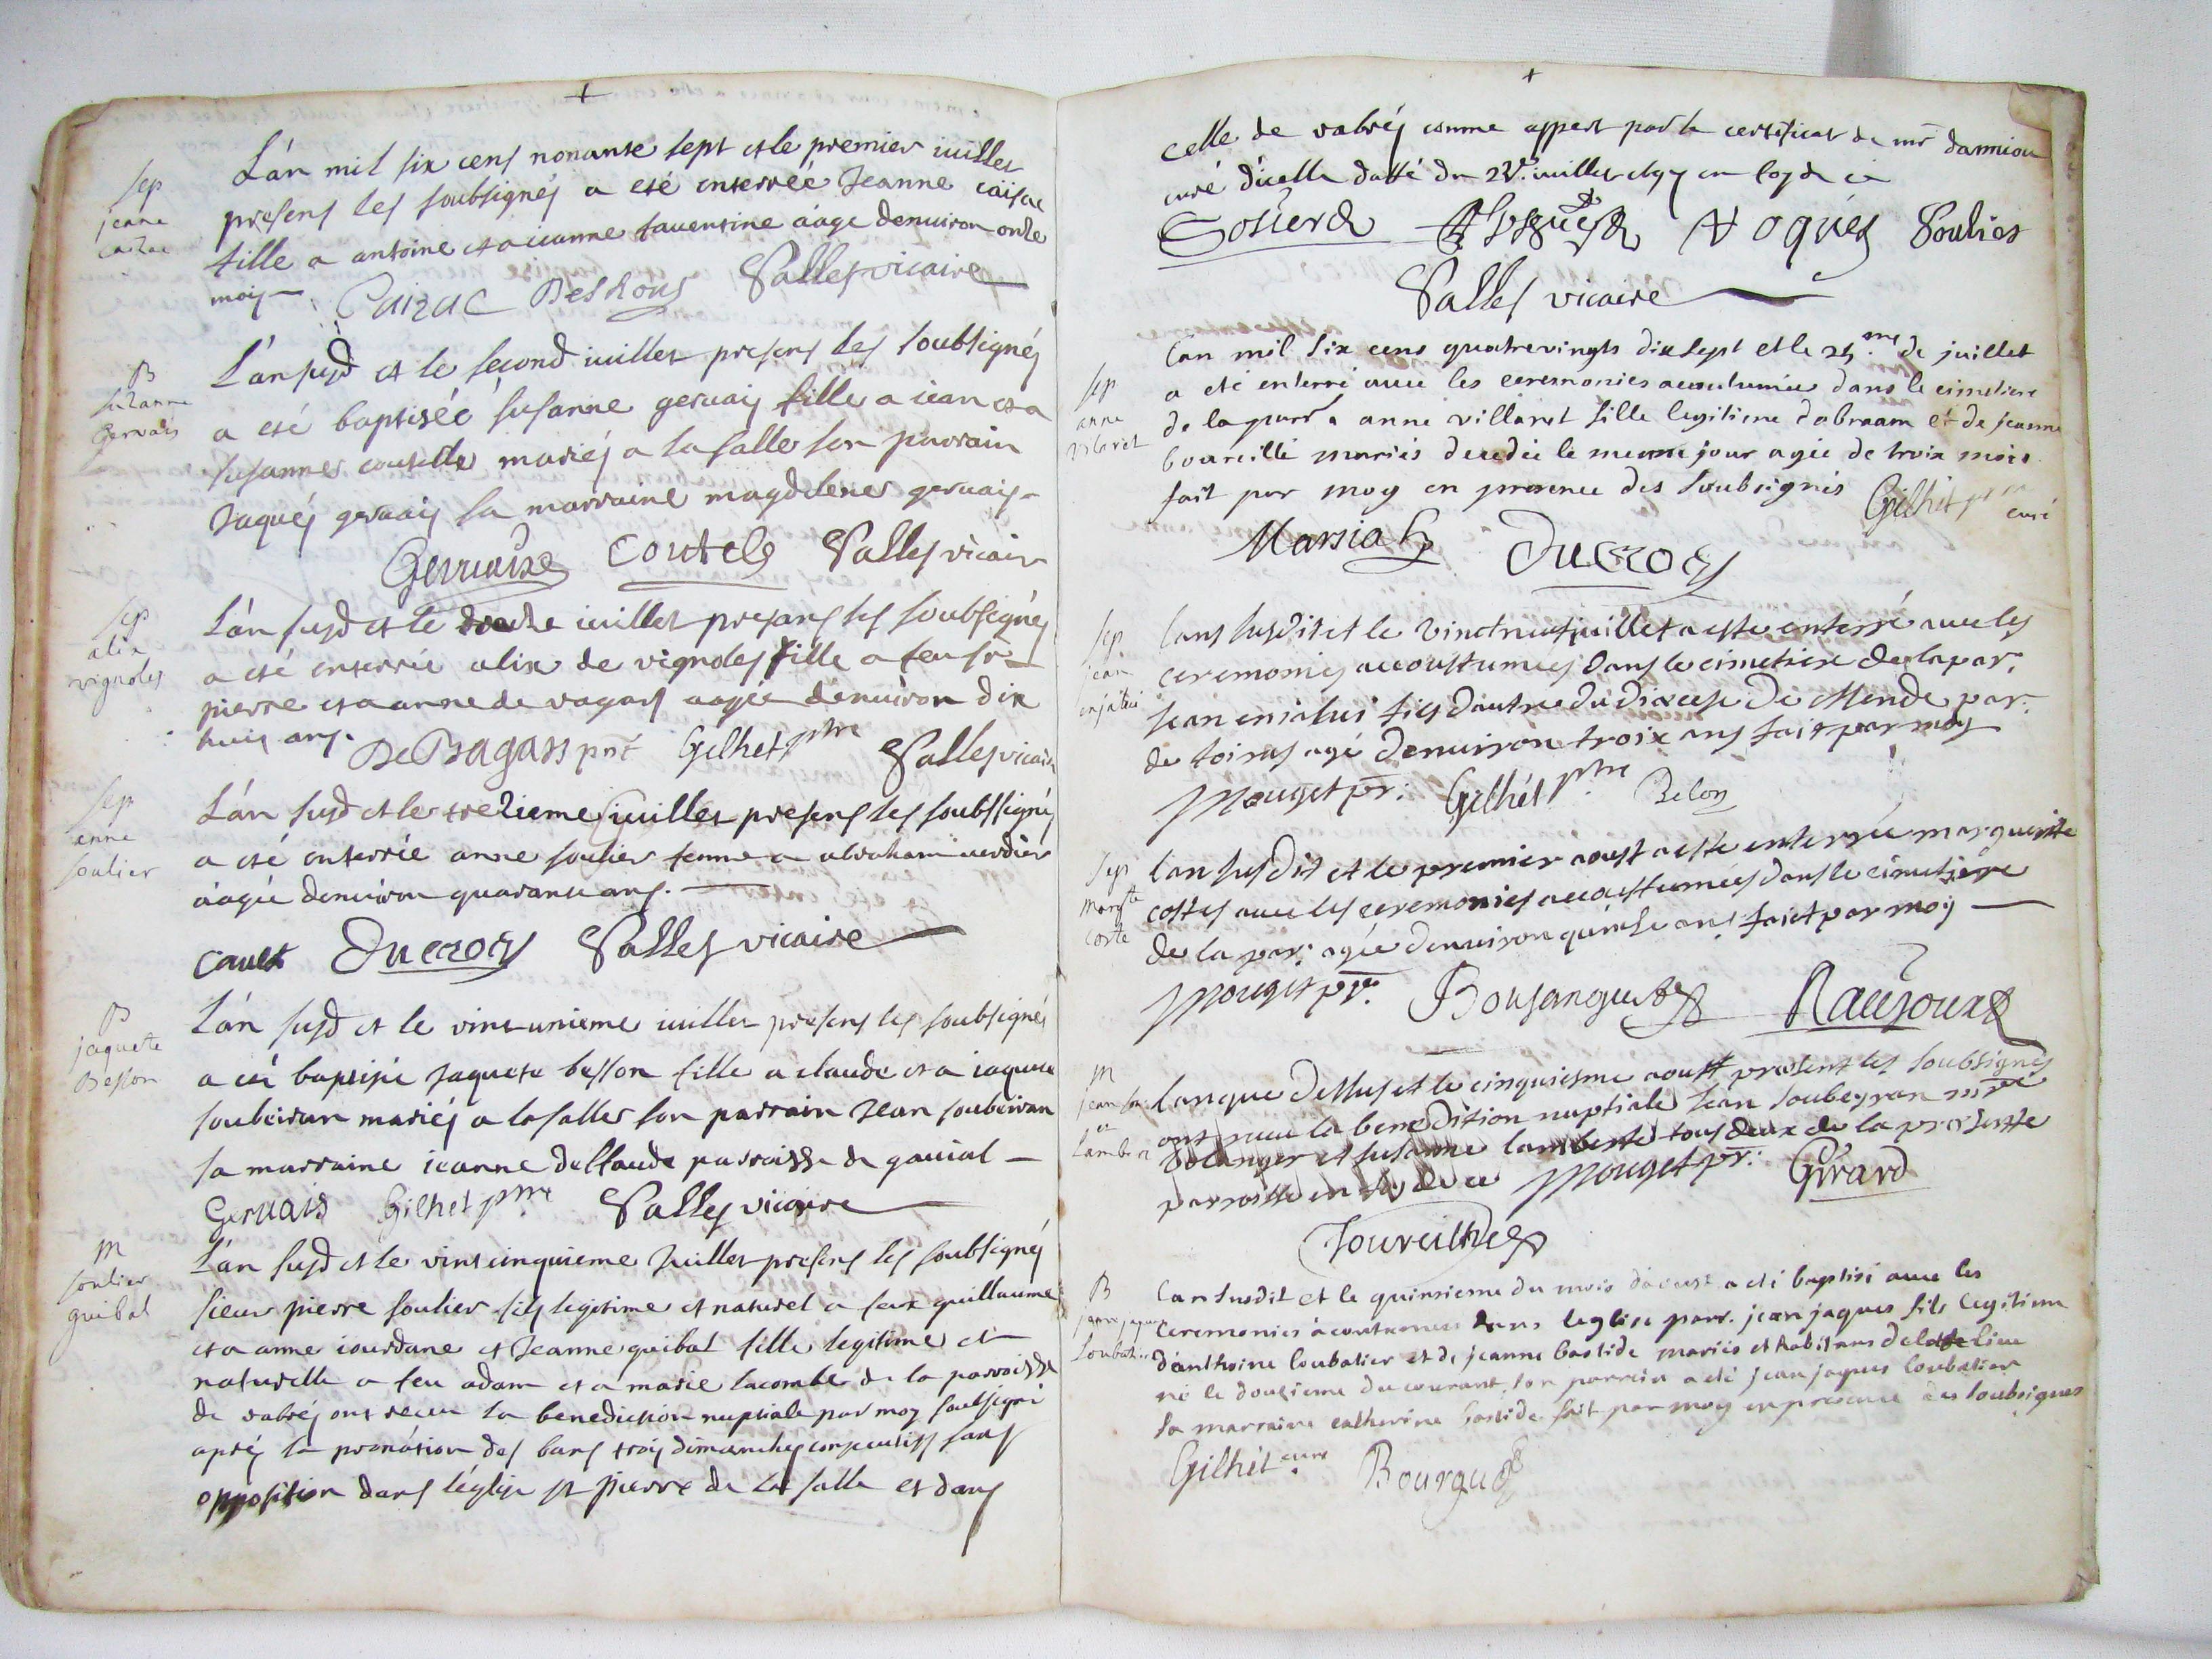 L'an mil six cens nonante sept et le premier iuillet
Sep
jeane
caizac
presens les soubsignés a eté enterréé Jeanne caisac
fille a antoine et a ieanne fauentine aâge denuiron onze
mois
Caizac Deshons Salles vicaire
B
Suzanne
Gervais
L'an susd et le second iuillet presens les soubsignés
a eté baptiséé susanne geruais fille a iean et a
susanne coutelle mariés a lasalle son parrain
Jaques geruais sa marraine magdelene geruais
Geruaise Coutele Salles vicaire
Sep
alix
vignoles
L'an susd et le douze iuillet presans les soubsignés
a eté enterrée alix de vignoles fille a feu sr
pierre et a anne de vagars aagée denuiron dix
huit ans.
De Bagars pnt Gilhet ptre Salles vicaire
Sep
anne
soulier
L'an susd et le trezieme iuillet presens les soubssignés
a eté enterrée anne soulier femme a abraham verdier
aàgée denuiron quarante ans.
caulet Ducros Salles vicaire
B
jaquete
Besson
L'an susd et le vint unieme iuillet presens les soubsignés
a eté baptisée Jaquete besson fille a claude et a iaquete
soubeiran mariés a lasalle son parrain Jean soubeiran
sa marraine ieanne delfaude parroisse de gauial
Geruais Gilhet ptre Salles vicaire
M
soulier
guibal
L'an susd et le vint cinquieme Juillet presens les soubsignés
sieur pierre soulier fils legitime et naturel a feu guillaume
et a anne iourdane et Jeanne guibal fille legitime et
naturelle a feu adam et a marie lacombe de la parroisse
de vabrés ont receu la benediction nuptiale par moy soubsigné
aprés la pronôtion des bans trois dimanches consecutifs sans
opposition dans l'église st pierre de la salle et dans
celle de vabrés comme appert par le certificat de mr damiou
curé d'icelle datté du iuillet en foy de ce
Nogués Soulier
Salles vicaire
Sep
anne
vilaret
L'an mil six cens quatrevingts dix sept et le 25.me de juillet
a eté enterré auec les ceremonies acoutumées dans le cimetiere
de la parr.e anne villaret fille legitime d'abraam et de jeanne
boureille mariés decedée le meme jour agée de troix mois
fait par moy en presence des soubsignés Gilhet ptre
curé
Marsial Ducros
Sep
jean
enjalvi
lans susdit et le vinctneuf juillet a este enterré auec les
ceremonies accoustumees dans le cimetiere de la par.
Jean enialvi fils dautre du diocese de Mende par.
de toiras agé denuiron troix ans fait par moy
Mouget pr. Gilhet ptre Belon
Sep
Margte
Coste
lan susdit et le premier aoust a este enterrée marguerite
costes auec les ceremonies accoustumées dans le cimetiére
de la par. agée denuiron quinse ans faict par moy
Mouget pr. Bousanquet Raujoux
M
jean sa
et
Lambert
lan que dessus et le cinquiesme aoust presents les soubsignés
ont receu la benedition nuptiale Jean soubeyran mre
bolanger et susanne lamberte tous deux de la presente
parroisse en foy de ce Mouget pr. Girard
Toureilhes
B
jean jaques
Loubat.
L'an susdit et le quinsieme du mois d'aoust a eté baptisé auec les
ceremonies acoutumees dans leglise parr. jean jaques fils legitime
d'anthoine loubatier et de jeanne bastide mariés et habitans deladte lieu
né le douzieme du courant, son parrein a eté jean jaques loubatier
sa marraine catherine bastide fait par moy en presence des soubsignes
Gilhet curé Bourguet